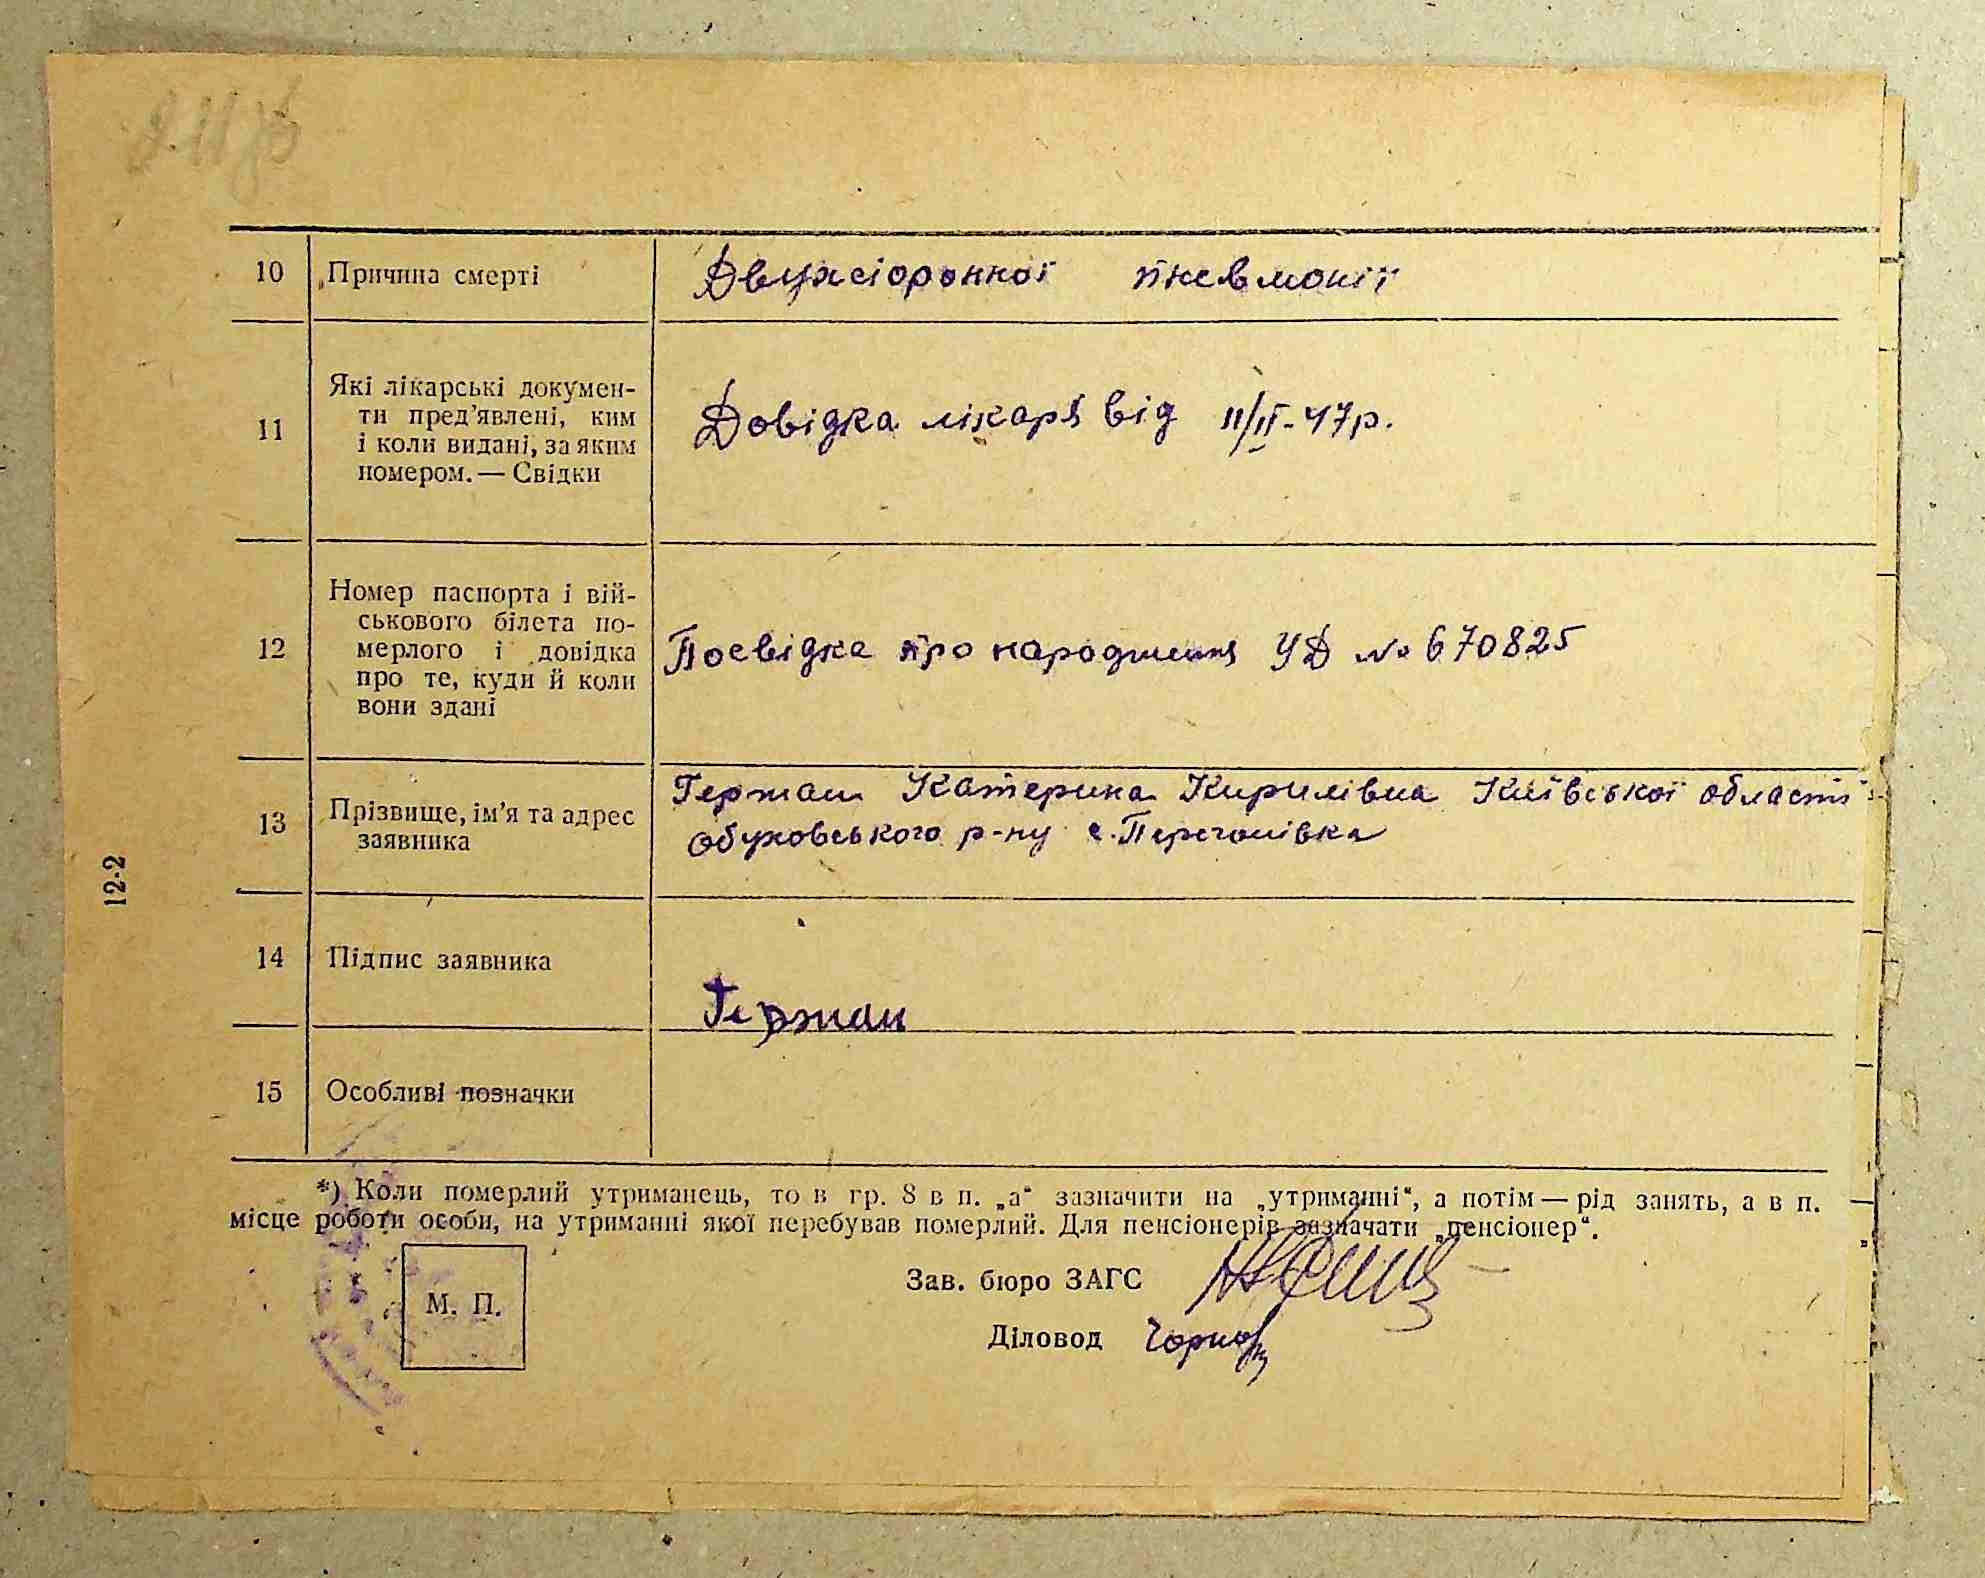 10 Причина смерті Двухсторонної пневмонії
11 Які лікарські докумен-
ти пред’явлені, ким
і коли видані, за яким
номером. — Свідки
Довідка лікаря від 11/II-47р.
12 Номер паспорта і вій-
ськового білета по-
мерлого і довідка
про те, куди й коли
вони здані
Посвідка про народження УД № 670825
13 Прізвище, ім’я та адрес
заявника
Гержан Катерина Кирилівна Київської області
Обуховського р-ну с.
14 Підпис заявника
Гержан
15 Особливі позначки
12-2
*) Коли померлий утриманець, то в гр. 8 в п. „а“ зазначити на „утриманні“, а потім — рід занять, а в п.
місце роботи особи, на утриманні якої перебував померлий. Для пенсіонерів зазначати „пенсіонер“.
М. П.
Зав. бюро ЗАГС
Діловод